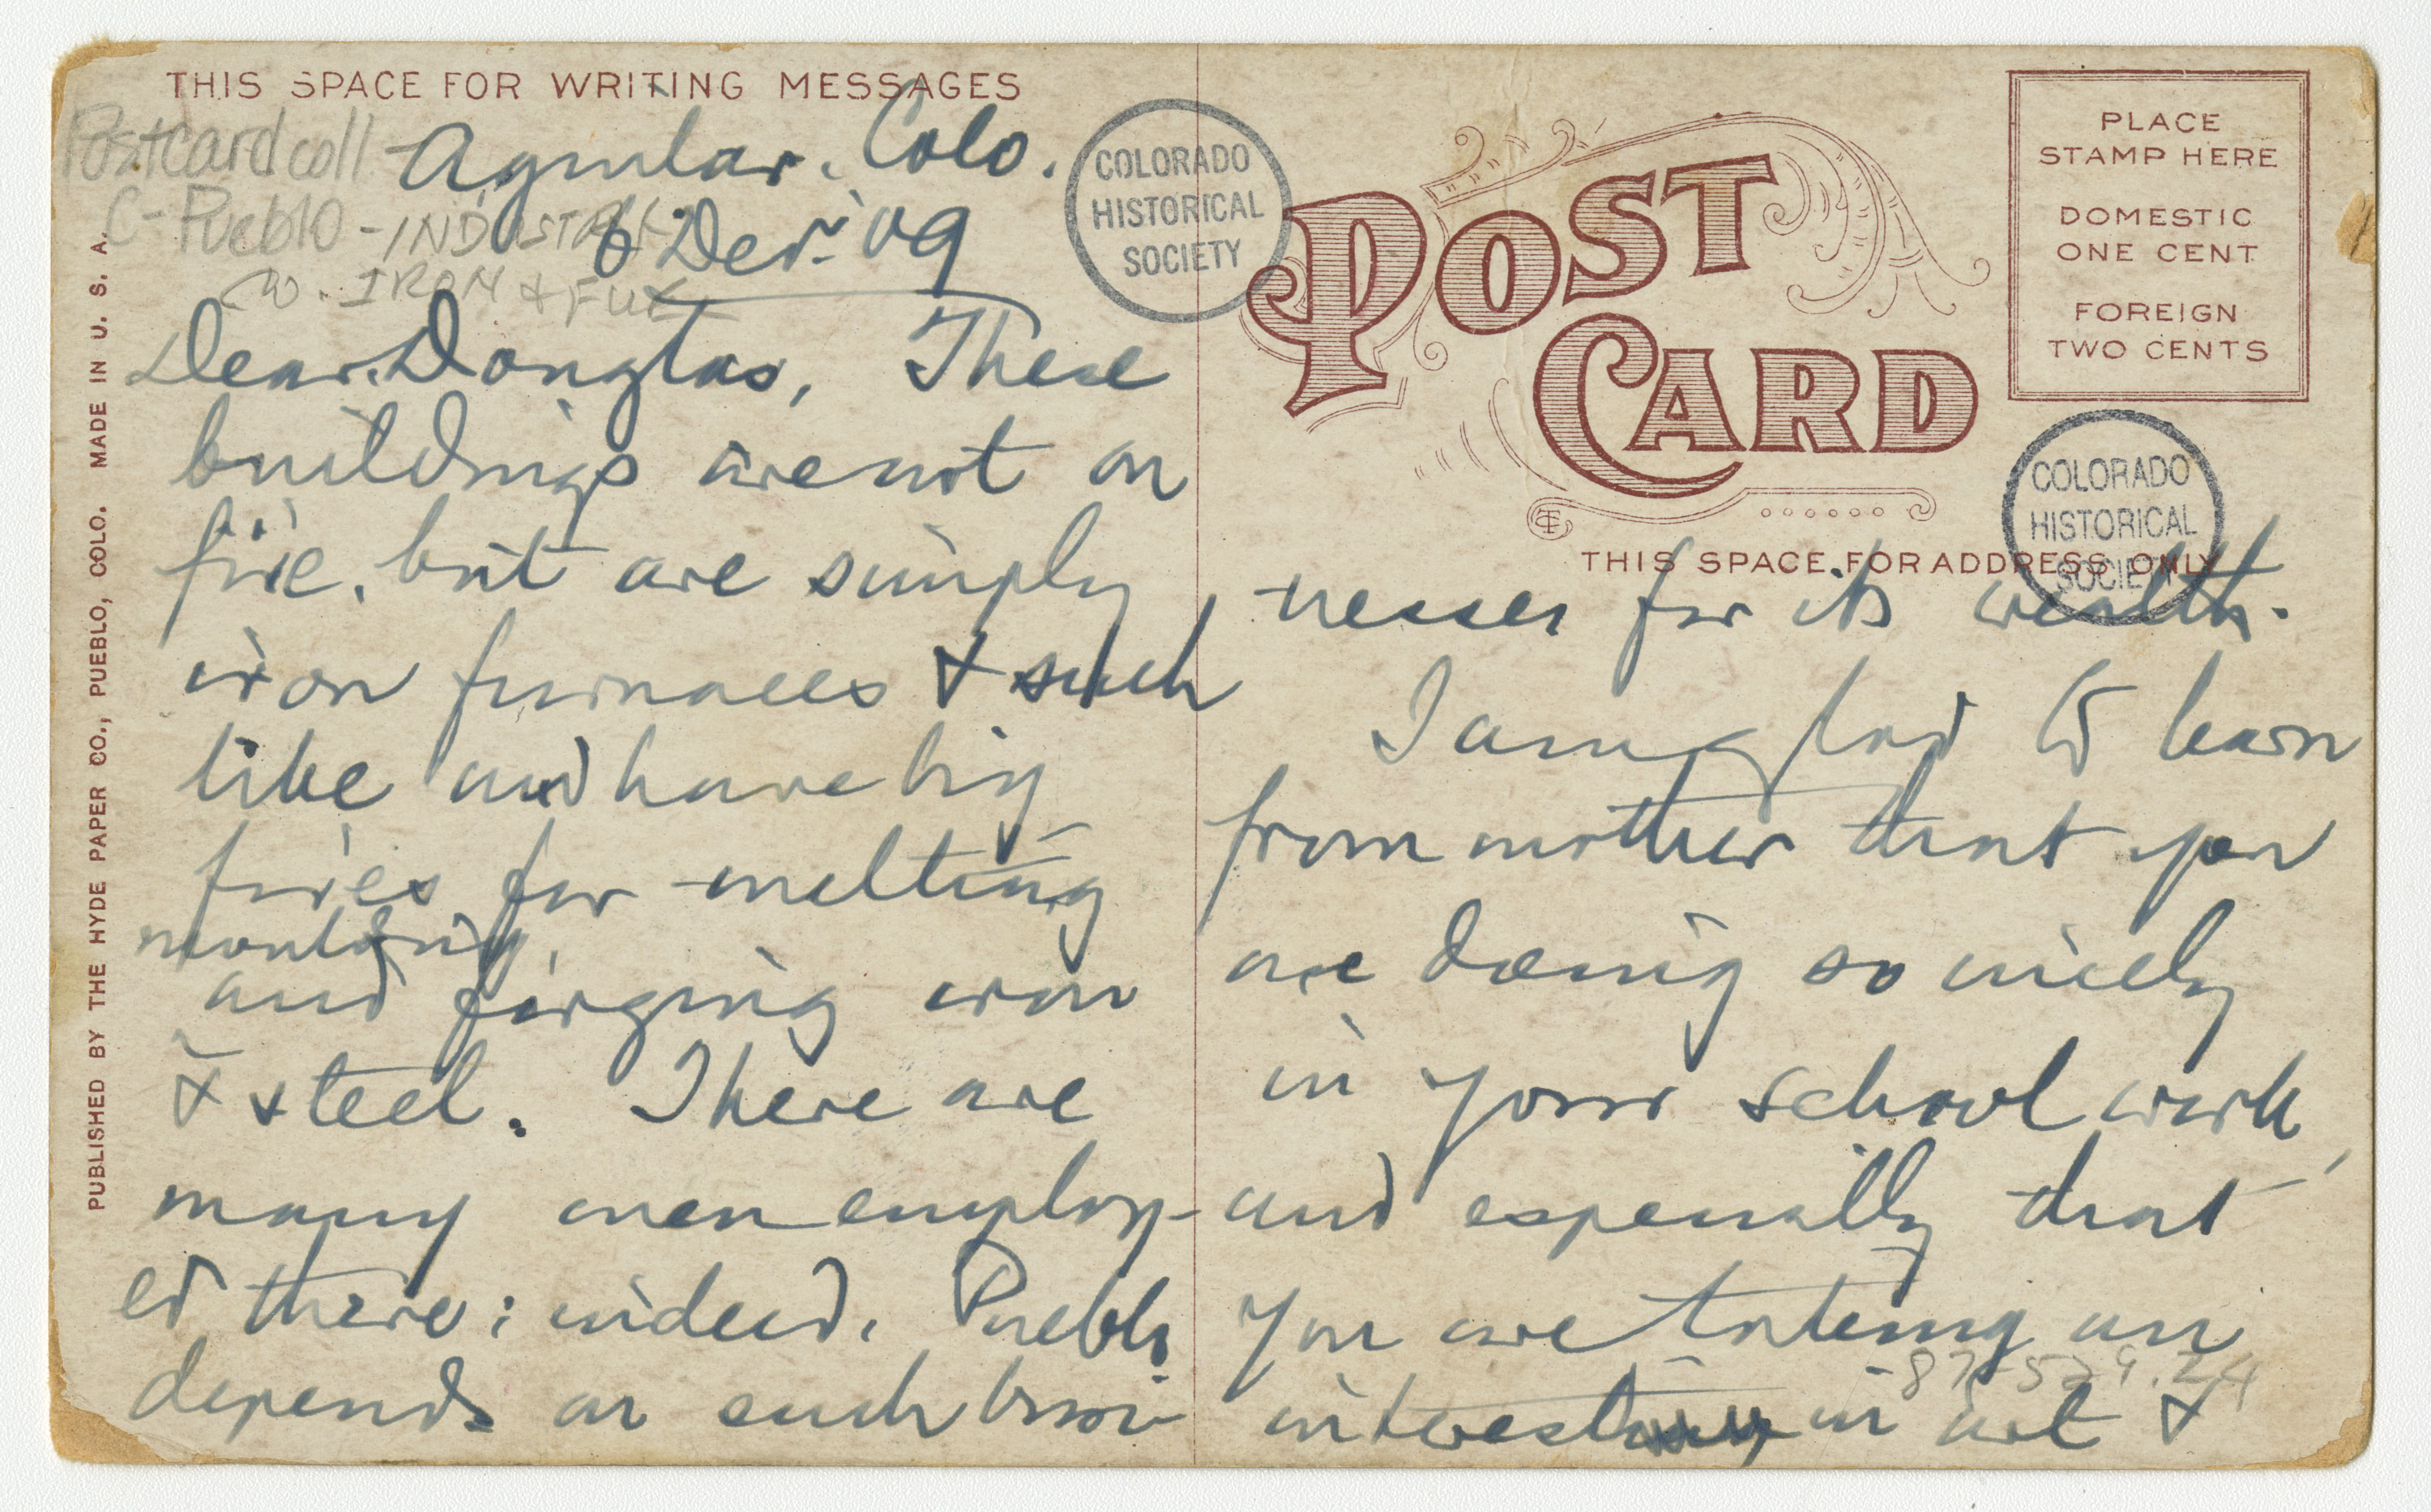 THIS SPACE FOR WRITING MESSAGES
Postcard coll
C-Pueblo-INDUSTRY
IRON & FUEL
Aguilar, Colo.
6 Dec. '09
Dear Douglas, These
buildings are not on
fire, but are simply
iron furnaces & such
like and have big
fires for melting
moulding,
and forging iron
& steel. There are
many men employ-
ed there; indeed, Pueblo
depends on such busi-
PUBLISHED BY THE HYDE PAPER CO., PUEBLO, COLO. MADE IN U. S. A.
COLORADO
HISTORICAL
SOCIETY
POST
CARD
PLACE
STAMP HERE
DOMESTIC
ONE CENT
FOREIGN
TWO CENTS
COLORADO
HISTORICAL
SOCIETY
THIS SPACE FOR ADDRESS ONLY
nesses for its wealth.
I am glad to learn
from mother that you
are doing so nicely
in your school work,
and especially that
you are taking an
interest in art &